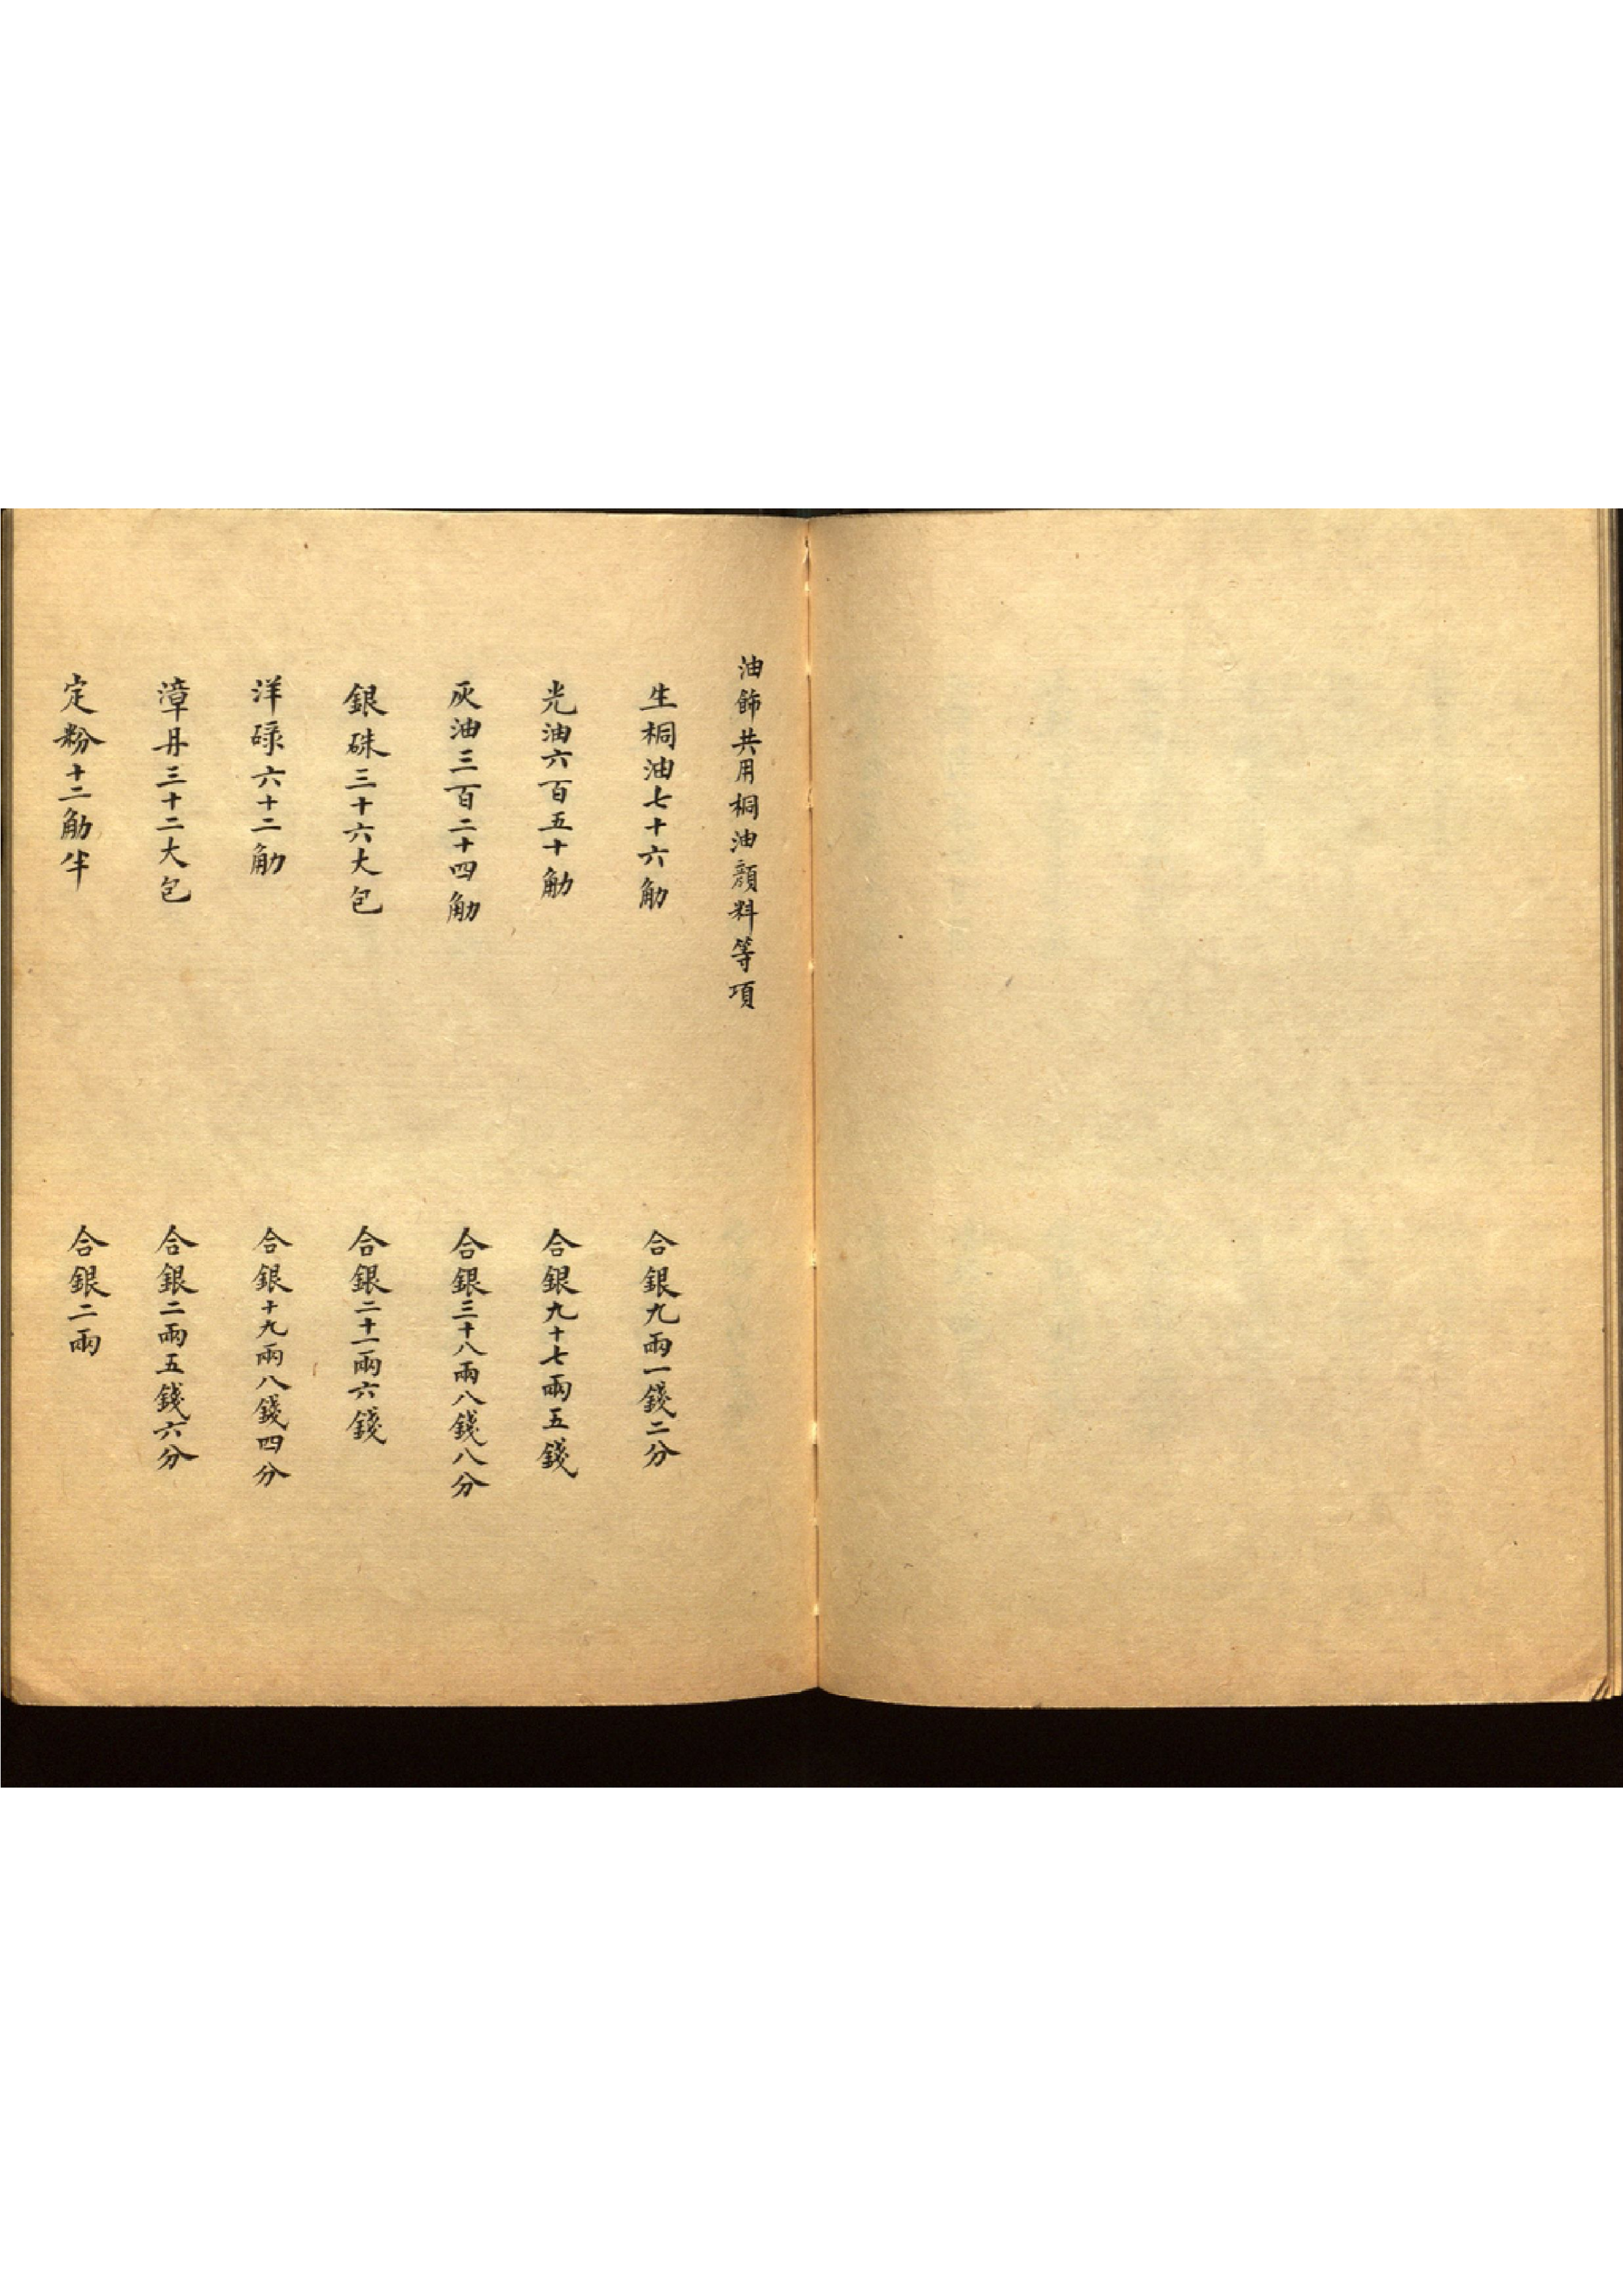 油飾共用桐油顔料等項
生桐油七十六觔　合銀九兩一錢二分
光油六百五十觔　合銀九十七兩五錢
灰油三百二十四觔　合銀三十八兩八錢八分
銀硃三十六大包　合銀二十一兩六錢
洋碌六十二觔　合銀十九兩八錢四分
漳丹三十二大包　合銀二兩五錢六分
定粉十二觔半　合銀二兩